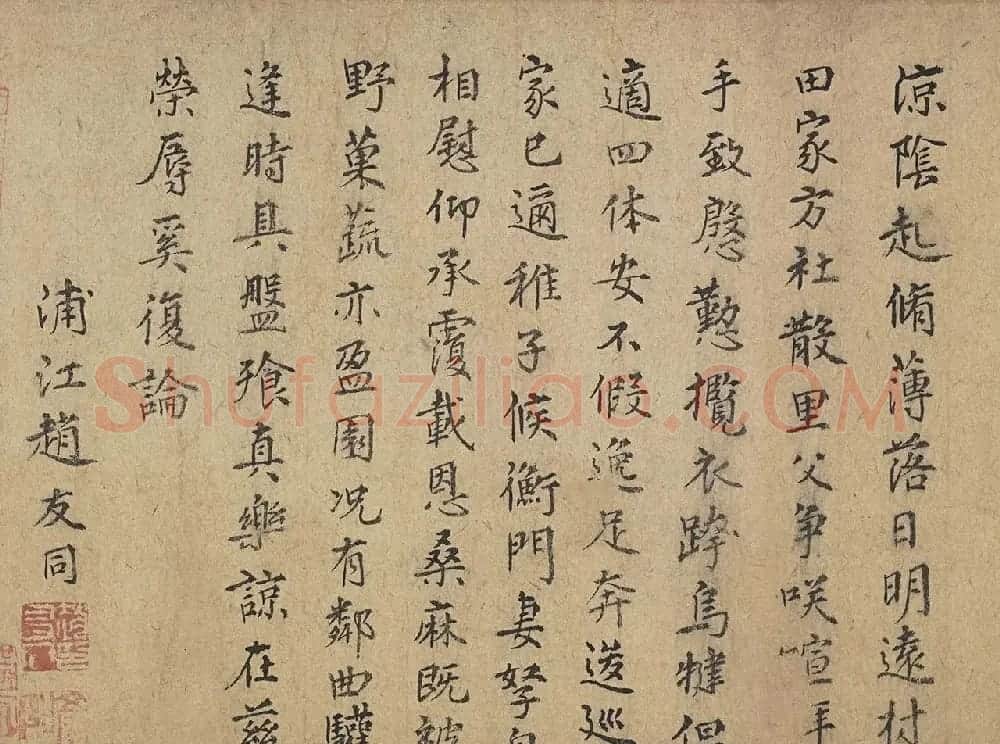 涼陰起脩薄落日明遠村
田家方社散里父争咲喧
手致慇懃攬衣跨烏犍但
適四体安不假逸足奔逡巡
家已邇稚子候衡門妻孥自
相慰仰承覆載恩桑麻既被
野菓蔬亦盈園况有鄰曲驩
逢時具盤飱真樂諒在茲
榮辱奚復論
浦江趙友同
Shufaziliao.com